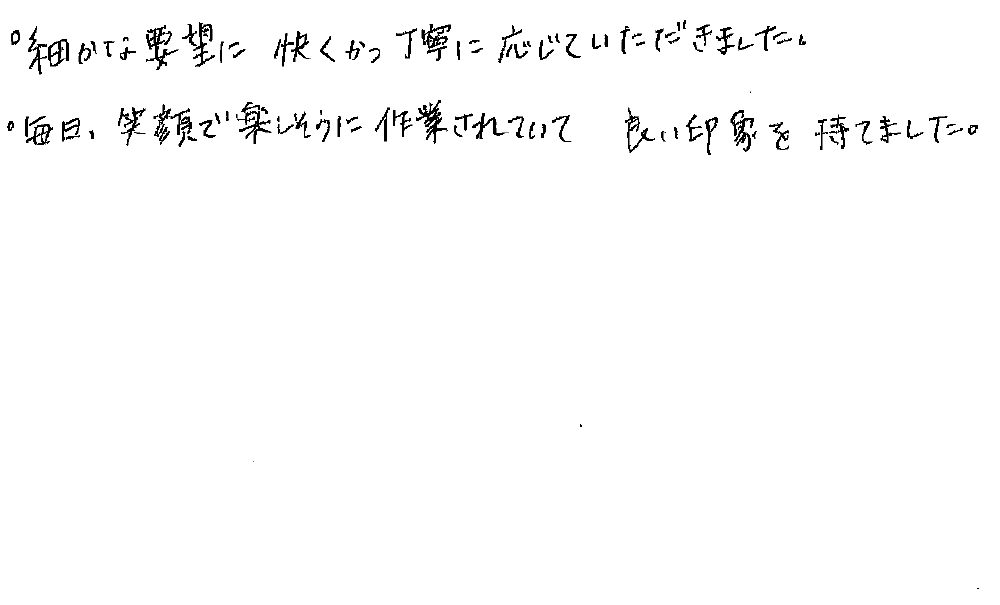 ◦細かな要望に 快くかつ丁寧に応じていただきました。
◦毎日、笑顔で楽しそうに作業されていて 良い印象を持てました。